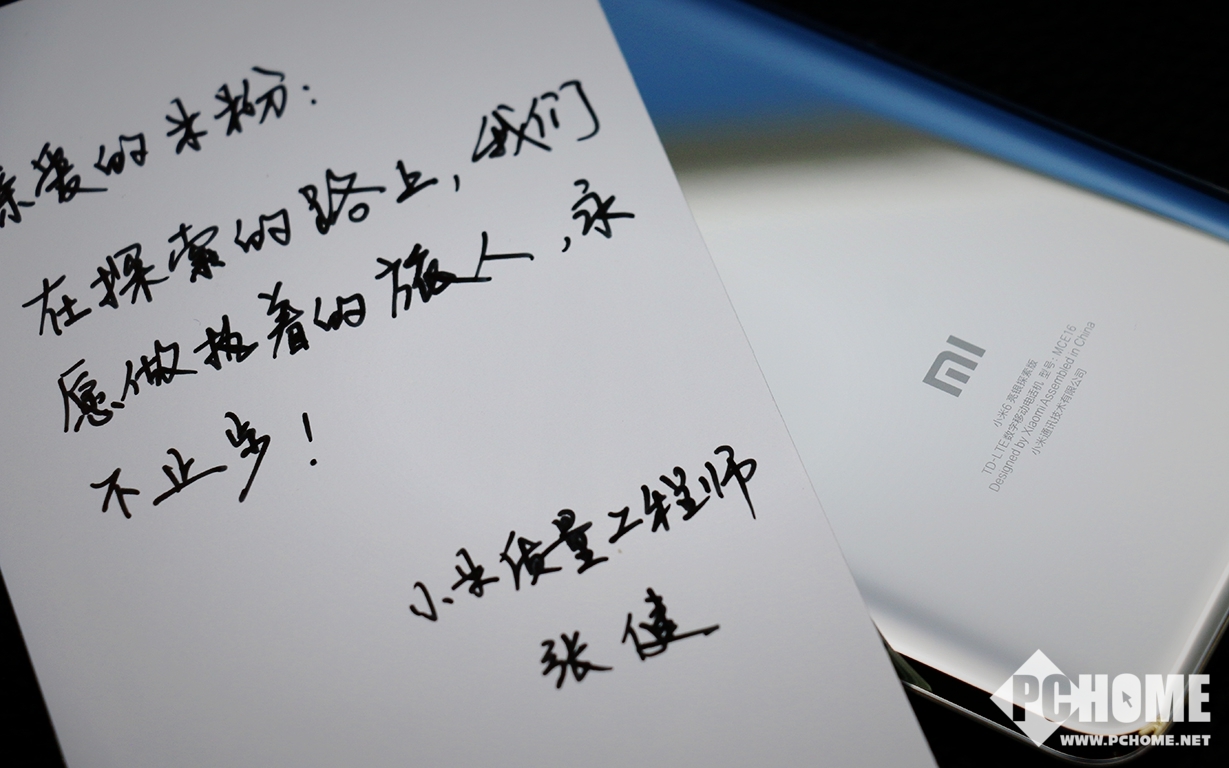 亲爱的米粉：
在探索的路上，我们
愿做执着的旅人，永
不止步！
小米质量工程师
张健
MI
小米6 亮银探索版
TD-LTE数字移动电话机 型号：MCE16
Designed by Xiaomi Assembled in China
小米通讯技术有限公司
PCHOME
WWW.PCHOME.NET